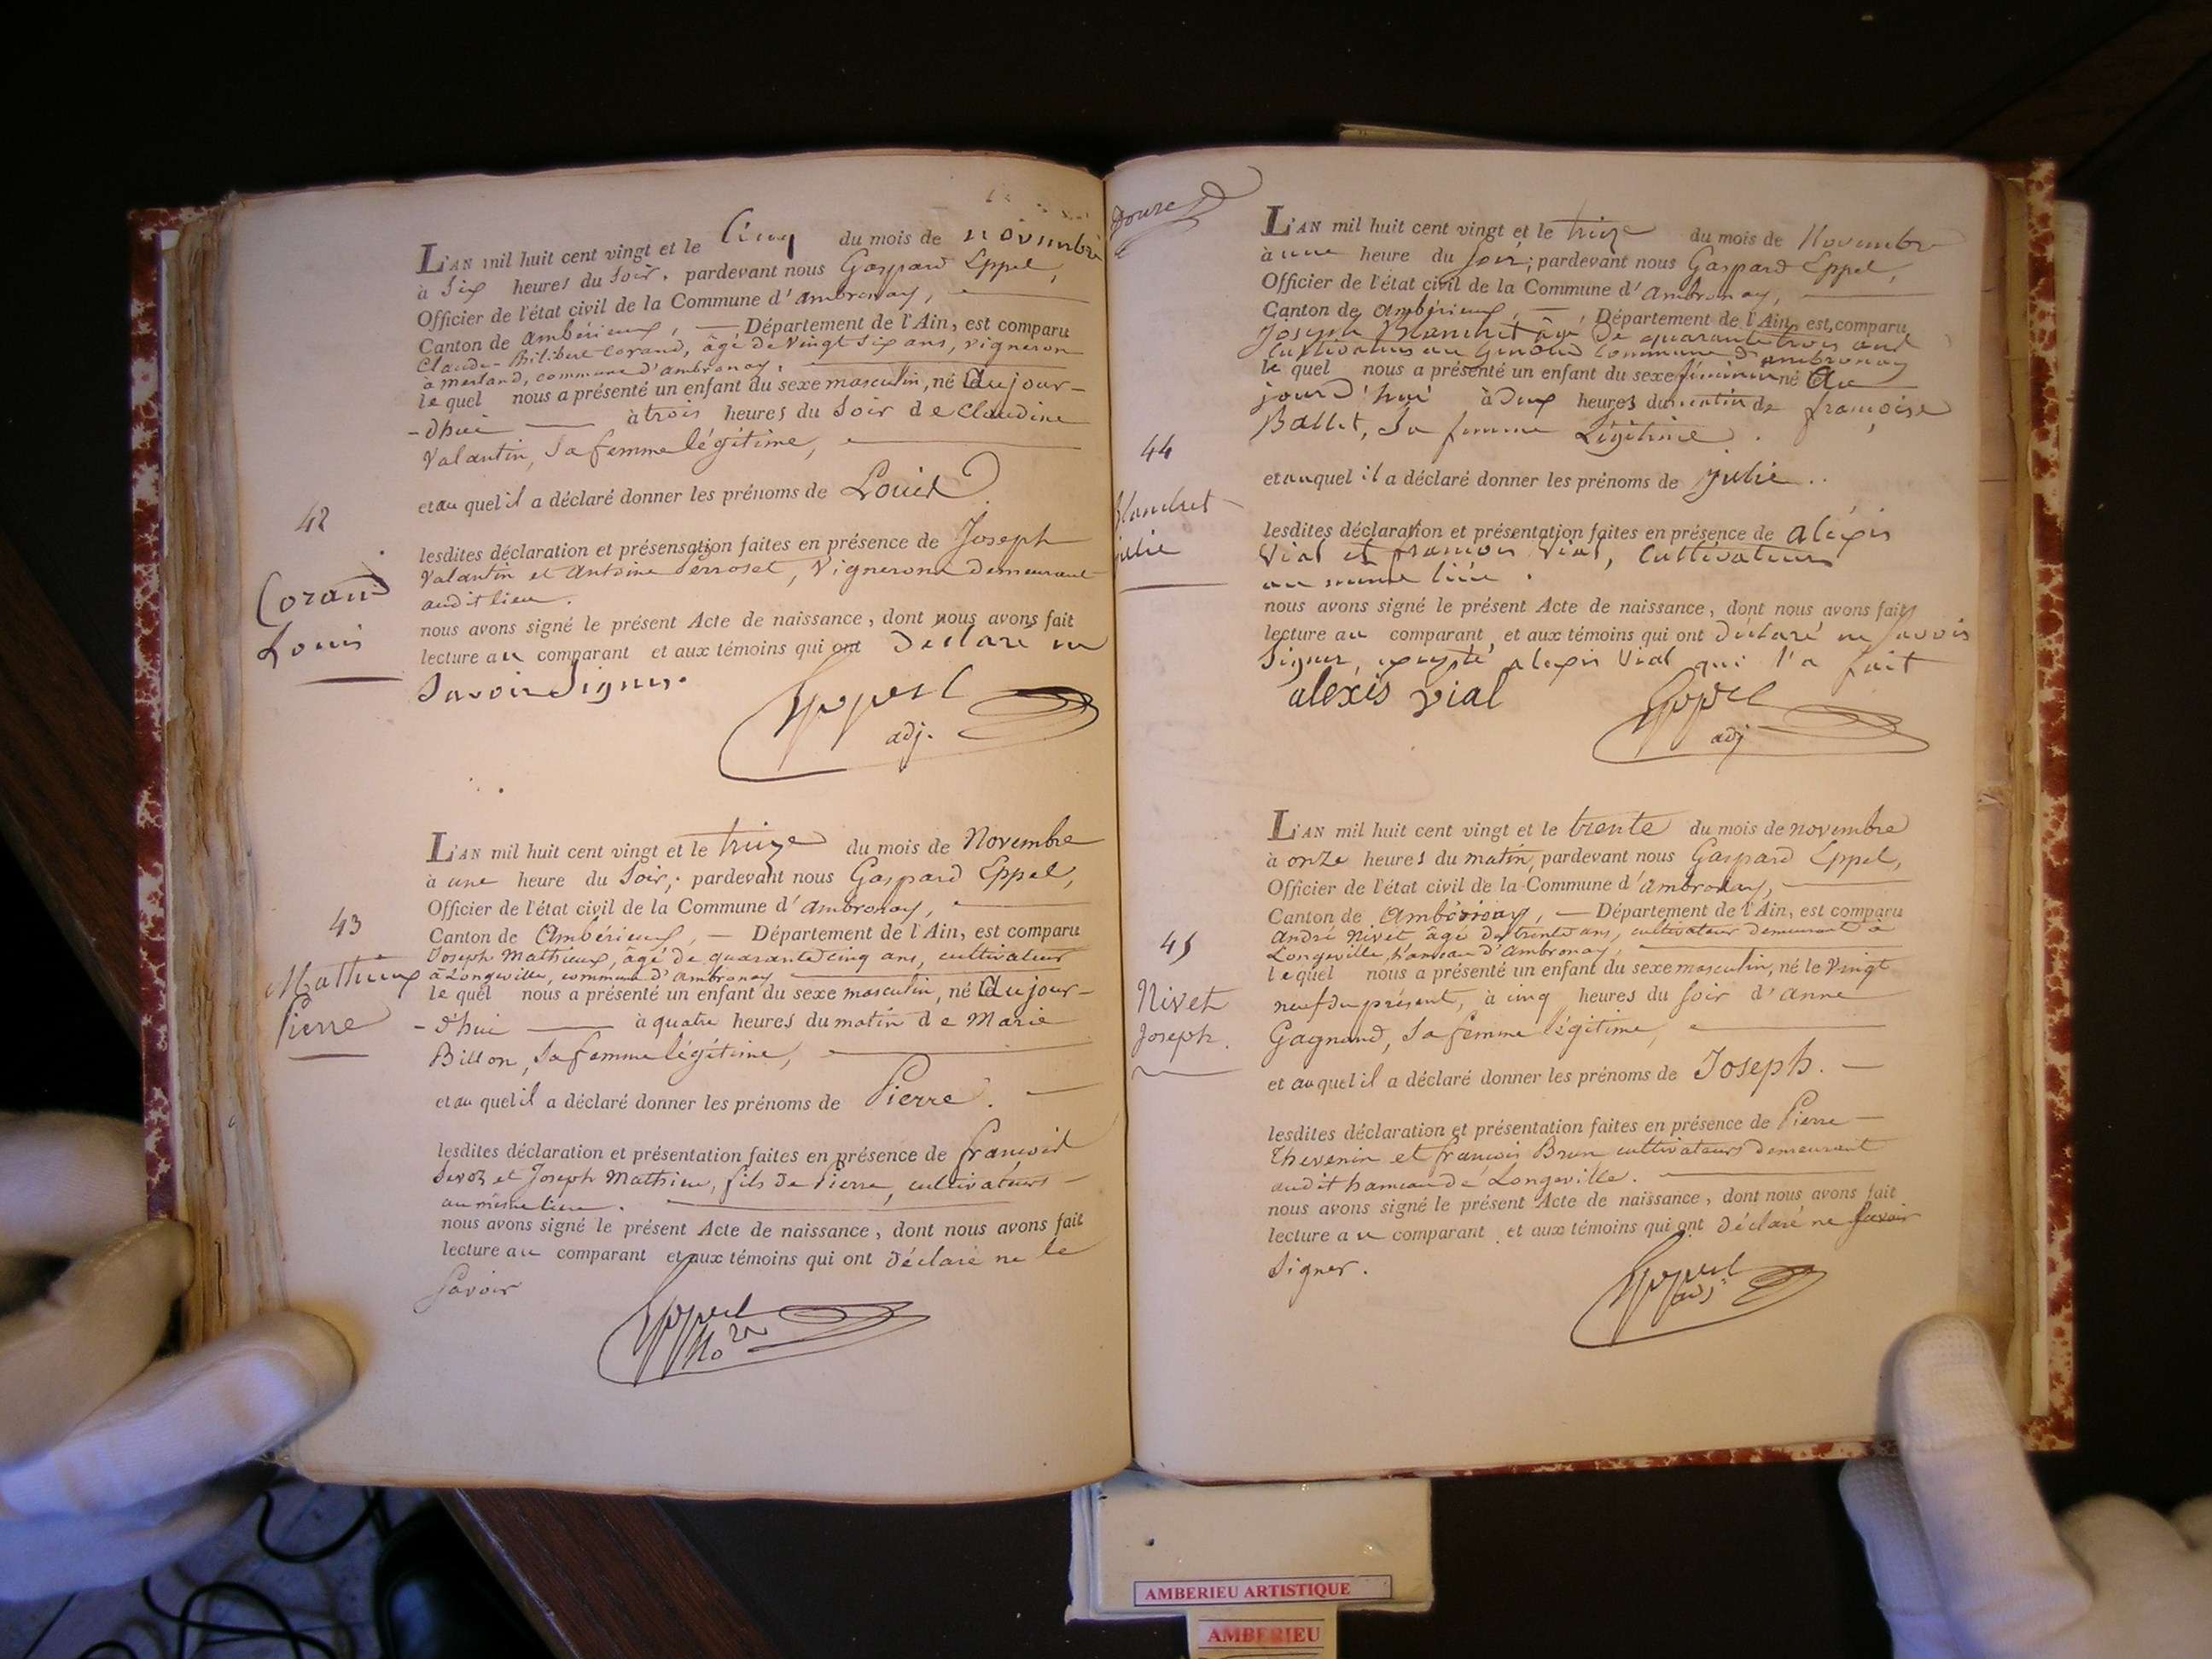 L'AN mil huit cent vingt et le Cinq du mois de novembre
à Six heures du Soir, pardevant nous Gaspard Eppel,
Officier de l'état civil de la Commune d'ambronay,
Canton de ambérieux, — Département de l'Ain, est comparu
Claude-Philibert Corand, âgé de vingt six ans, vigneron
à merland, commune d'ambronay,
le quel nous a présenté un enfant du sexe masculin, né Cejour-
-d'hui à trois heures du Soir de Claudine
Valantin, Sa femme légitime,
et au quel il a déclaré donner les prénoms de Louis
42
Corand
Louis
lesdites déclaration et présensation faites en présence de Joseph
Valantin et Antoine Perroset, Vignerons demeurant
audit lieu.
nous avons signé le présent Acte de naissance, dont nous avons fait
lecture au comparant et aux témoins qui ont Déclaré ne
Savoir Signer.
Eppel
adj.
L'AN mil huit cent vingt et le treize du mois de Novembre
à une heure du Soir, pardevant nous Gaspard Eppel,
Officier de l'état civil de la Commune d'ambronay,
Canton de Ambérieux, — Département de l'Ain, est comparu
Joseph Mathieux, âgé de quarante cinq ans, cultivateur
à Longeville, commune d'ambronay
le quel nous a présenté un enfant du sexe masculin, né Cejour-
-d'hui à quatre heures du matin de Marie
Billon, Sa femme légitime,
et au quel il a déclaré donner les prénoms de Pierre.
43
Mathieux
Pierre
lesdites déclaration et présentation faites en présence de françois
et Joseph Mathieu, fils de Pierre, cultivateurs
au même lieu.
nous avons signé le présent Acte de naissance, dont nous avons fait
lecture au comparant et aux témoins qui ont Déclaré ne le
Savoir
Eppel
L'AN mil huit cent vingt et le treize du mois de Novembre
à une heure du Soir; pardevant nous Gaspard Eppel,
Officier de l'état civil de la Commune d'ambronay,
Canton de ambérieux, — Département de l'Ain, est comparu
Joseph Blanchet âgé de quarante trois ans
Cultivateur au Genoud Commune d'ambronay
le quel nous a présenté un enfant du sexe féminin né Ce
jourd'hui à Deux heures du matin de françoise
Ballet, Sa femme Légitime.
et auquel il a déclaré donner les prénoms de Julie..
44
Blanchet
julie
lesdites déclaration et présentation faites en présence de alexis
Vial et françois Vial, Cultivateurs
au même lieu.
nous avons signé le présent Acte de naissance, dont nous avons fait
lecture au comparant et aux témoins qui ont Déclaré ne Savoir
Signer, excepté alexis Vial qui l'a fait
alexis vial
Eppel
adj
L'AN mil huit cent vingt et le trente du mois de novembre
à onze heures du matin, pardevant nous Gaspard Eppel,
Officier de l'état civil de la Commune d'ambronay,
Canton de Ambronay, — Département de l'Ain, est comparu
André Nivet, âgé de trente ans, cultivateur demeurant à
Longeville, hameau d'Ambronay,
le quel nous a présenté un enfant du sexe masculin, né le vingt
neuf du présent, à cinq heures du Soir d'anne
Gagnard, Sa femme légitime,
et auquel il a déclaré donner les prénoms de Joseph.
45
Nivet
Joseph.
lesdites déclaration et présentation faites en présence de Pierre
Thevenin et françois Brun cultivateurs demeurant
audit hameau de Longeville.
nous avons signé le présent Acte de naissance, dont nous avons fait
lecture au comparant, et aux témoins qui ont Déclaré ne Savoir
Signer.
Eppel
adj
AMBERIEU ARTISTIQUE
AMBERIEU